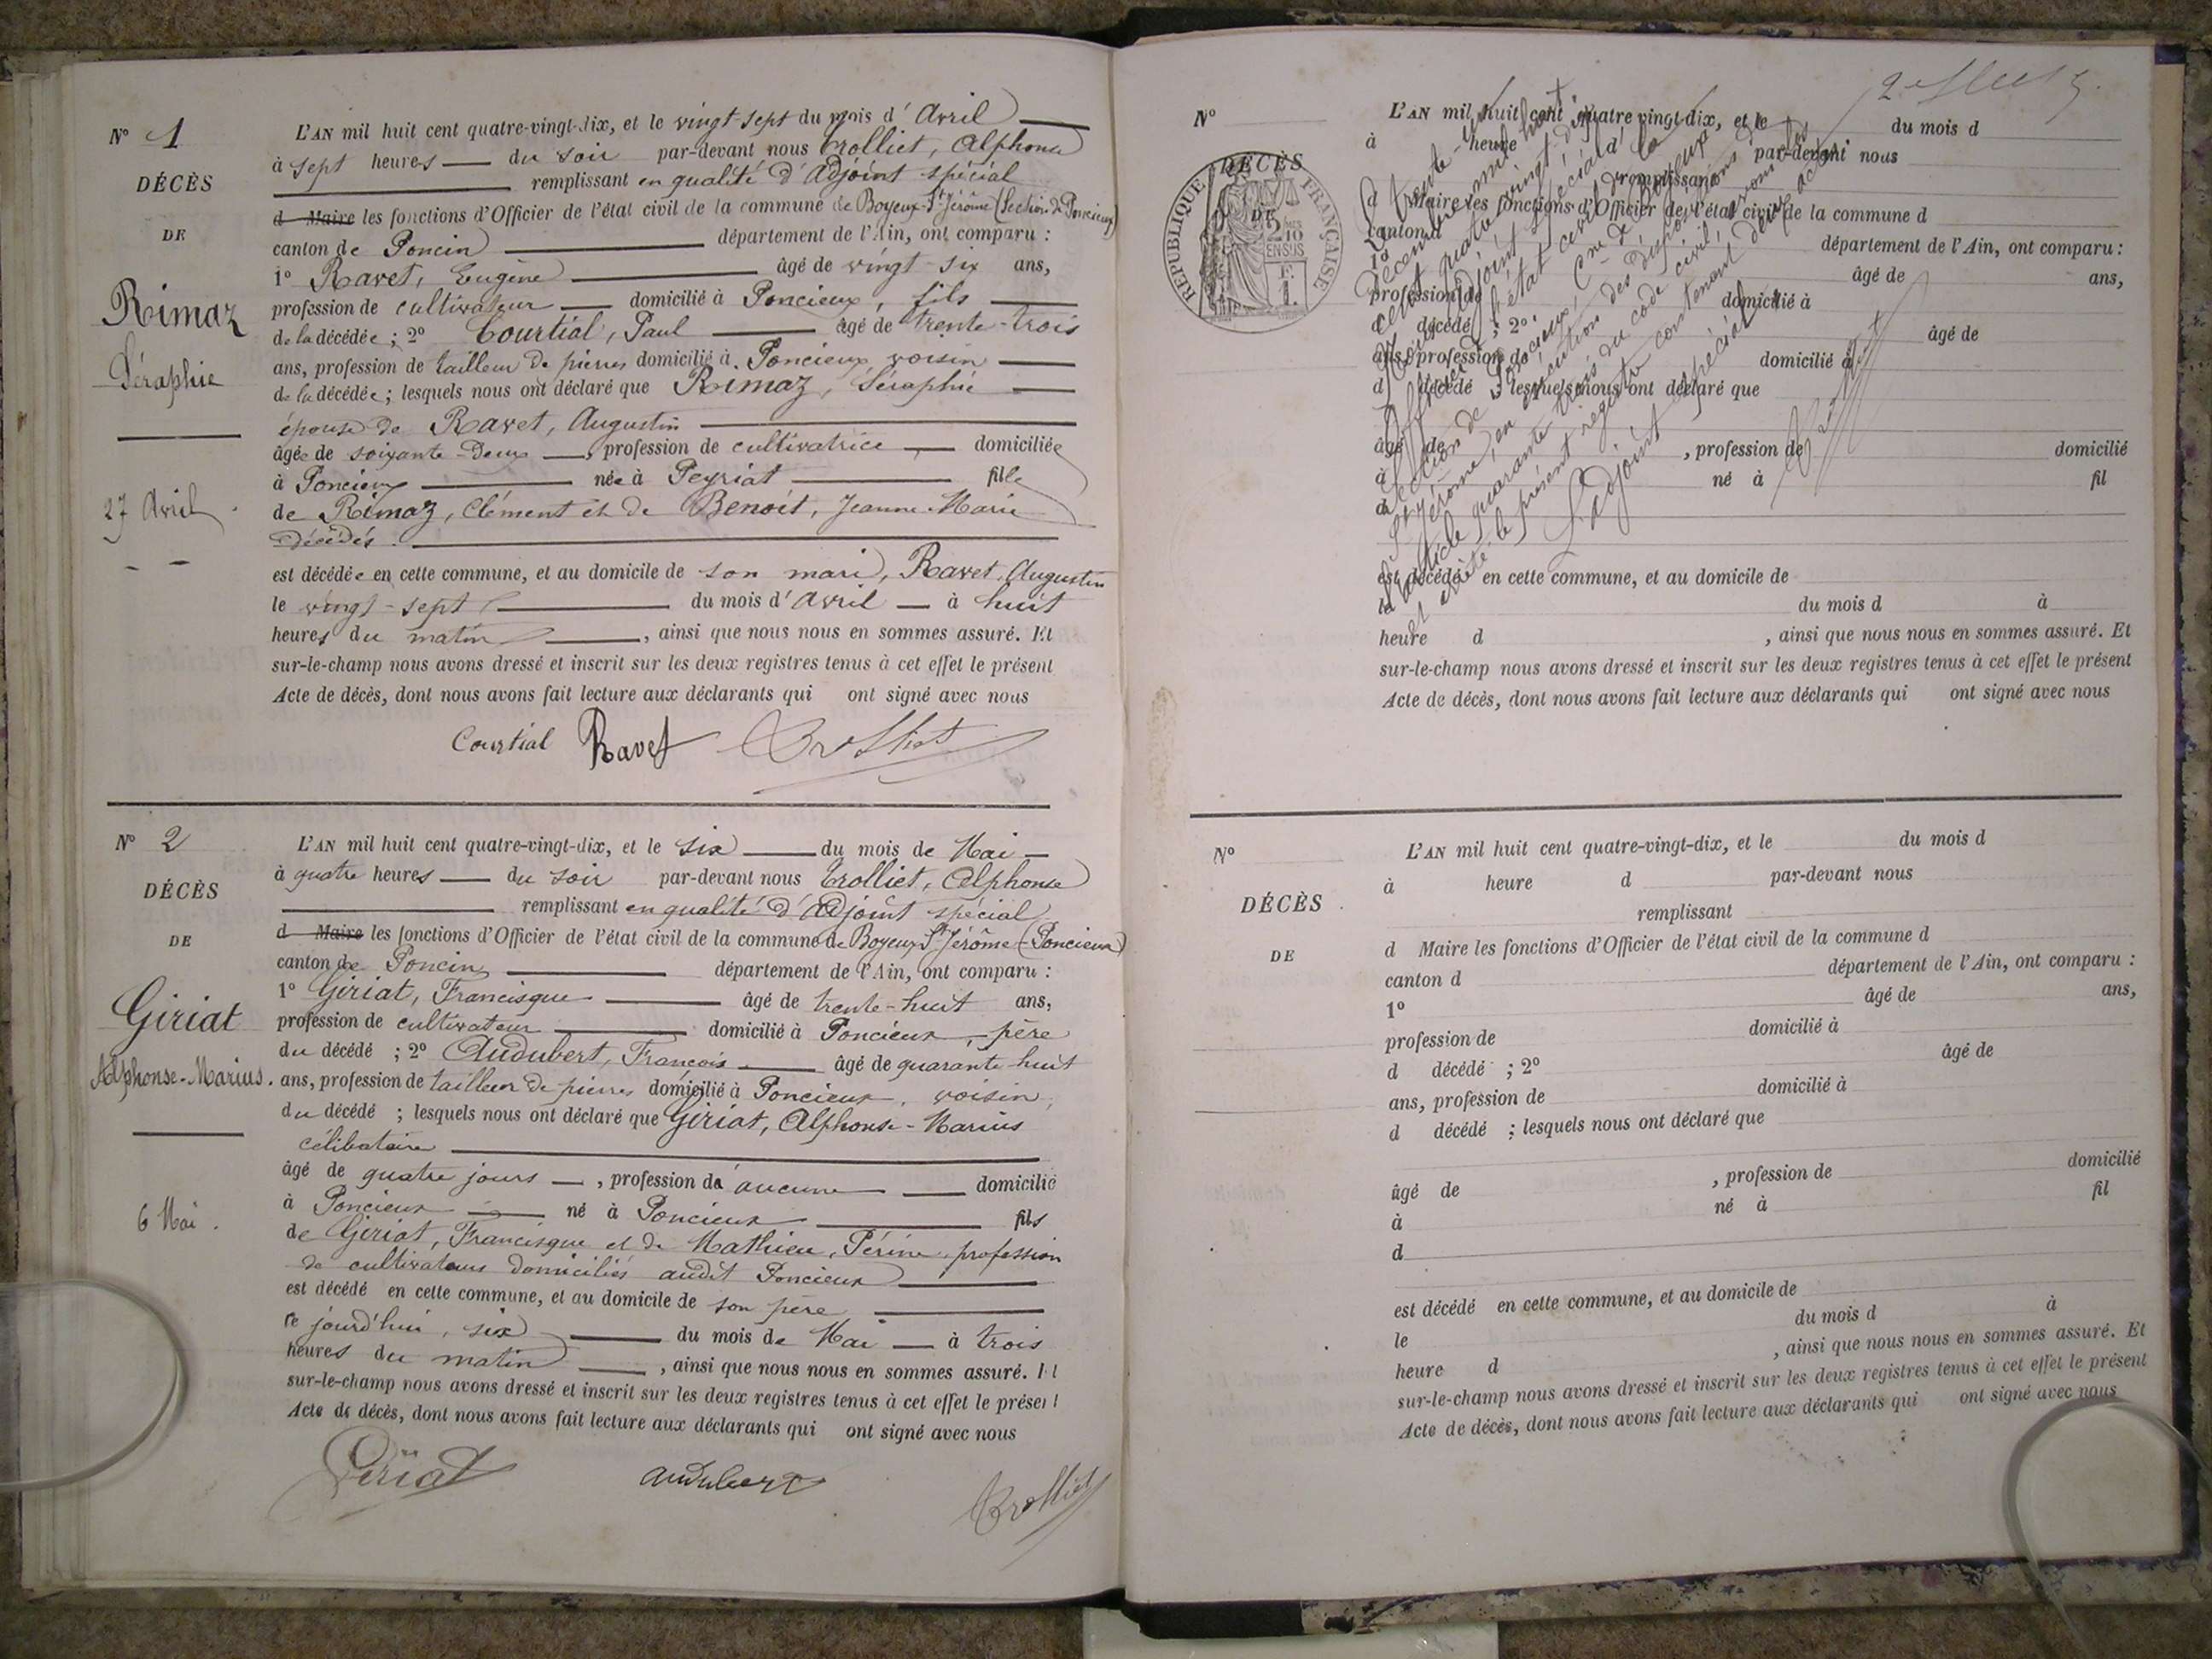 N° 1
DÉCÈS
DE
Rimaz
Séraphie
27 Avril
L'AN mil huit cent quatre-vingt-dix, et le vingt sept du mois d'Avril
à sept heures du soir par-devant nous Trolliet, Alphonse
remplissant en qualité d'Adjoint spécial
d Maire les fonctions d'Officier de l'état civil de la commune de Boyeux-St Jérôme (Section de Poncieux)
canton de Poncin département de l'Ain, ont comparu :
1° Ravet, Eugène âgé de vingt-six ans,
profession de cultivateur domicilié à Poncieux, fils
de la décédée ; 2° Courtial, Paul âgé de trente-trois
ans, profession de tailleur de pierres domicilié à Poncieux, voisin
de la décédée ; lesquels nous ont déclaré que Rimaz, Séraphie
épouse de Ravet, Augustin
âgée de soixante-deux, profession de cultivatrice domiciliée
à Poncieux née à Peyriat fille
de Rimaz, Clément et de Benoît, Jeanne-Marie
décédés.
est décédée en cette commune, et au domicile de son mari, Ravet, Augustin
le vingt-sept du mois d'Avril à huit
heures du matin, ainsi que nous nous en sommes assuré. Et
sur-le-champ nous avons dressé et inscrit sur les deux registres tenus à cet effet le présent
Acte de décès, dont nous avons fait lecture aux déclarants qui ont signé avec nous
Courtial Ravet Trolliet
N° 2
DÉCÈS
DE
Giriat
Alphonse-Marius.
6 Mai.
L'AN mil huit cent quatre-vingt-dix, et le six du mois de Mai
à quatre heures du soir par-devant nous Trolliet, Alphonse
remplissant en qualité d'Adjoint spécial
d Maire les fonctions d'Officier de l'état civil de la commune de Boyeux St Jérôme (Poncieux)
canton de Poncin département de l'Ain, ont comparu :
1° Giriat, Francisque âgé de trente-huit ans,
profession de cultivateur domicilié à Poncieux, père
du décédé ; 2° Audubert, François âgé de quarante-huit
ans, profession de tailleur de pierres domicilié à Poncieux, voisin,
du décédé ; lesquels nous ont déclaré que Giriat, Alphonse-Marius
célibataire
âgé de quatre jours, profession de aucune domicilié
à Poncieux né à Poncieux fils
de Giriat, Francisque et de Mathieu, Périne, profession
de cultivateurs domiciliés audit Poncieux
est décédé en cette commune, et au domicile de son père
ce jourd'hui, six du mois de Mai à trois
heures du matin, ainsi que nous nous en sommes assuré. Et
sur-le-champ nous avons dressé et inscrit sur les deux registres tenus à cet effet le présent
Acte de décès, dont nous avons fait lecture aux déclarants qui ont signé avec nous
Giriat Audubert Trolliet
N°
DÉCÈS
DE
RÉPUBLIQUE FRANÇAISE
2/10 EN SUS
L'AN mil huit cent quatre vingt-dix, et le du mois d
à heure d par-devant nous
remplissant
d Maire les fonctions d'Officier de l'état civil de la commune d
canton d département de l'Ain, ont comparu :
1° âgé de ans,
profession de domicilié à
d décédé ; 2° âgé de
ans, profession de domicilié à
d décédé ; lesquels nous ont déclaré que
âgé de , profession de domicilié
à né à fil
d
est décédé en cette commune, et au domicile de
le du mois d à
heure d , ainsi que nous nous en sommes assuré. Et
sur-le-champ nous avons dressé et inscrit sur les deux registres tenus à cet effet le présent
Acte de décès, dont nous avons fait lecture aux déclarants qui ont signé avec nous
trente-un
décembre mil huit
cent quatre vingt-dix
adjoint spécial
Officier de l'état civil de la
section de Poncieux, Cne de Boyeux
St Jérôme, en exécution des dispositions de
l'article quarante-trois du code civil, avons clos
et arrêté le présent registre contenant deux actes
L'adjoint spécial
Trolliet
N°
DÉCÈS
DE
L'AN mil huit cent quatre-vingt-dix, et le du mois d
à heure d par-devant nous
remplissant
d Maire les fonctions d'Officier de l'état civil de la commune d
canton d département de l'Ain, ont comparu :
1° âgé de ans,
profession de domicilié à
d décédé ; 2° âgé de
ans, profession de domicilié à
d décédé ; lesquels nous ont déclaré que
âgé de , profession de domicilié
à né à fil
d
est décédé en cette commune, et au domicile de
le du mois d à
heure d , ainsi que nous nous en sommes assuré. Et
sur-le-champ nous avons dressé et inscrit sur les deux registres tenus à cet effet le présent
Acte de décès, dont nous avons fait lecture aux déclarants qui ont signé avec nous